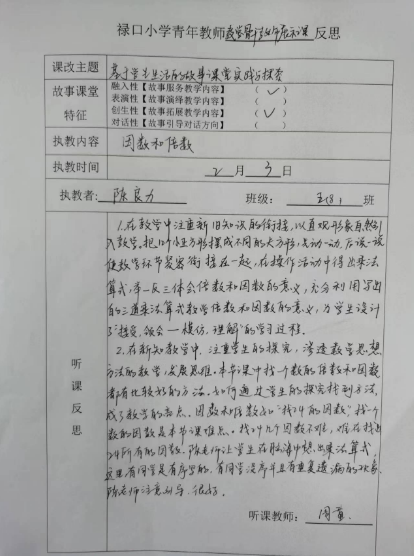 禄口小学青年教师 展示课 反思
课改主题 基于学生生活的故事课堂实践与探索
故事课堂特征
融入性【故事服务教学内容】 （ ✓ ）
表演性【故事演绎教学内容】 （ ）
创生性【故事拓展教学内容】 （ ✓ ）
对话性【故事引导对话方向】 （ ）
执教内容 因数和倍数
执教时间 2 月 3 日
执教者: 陈良力 班级: 五(8) 班
听课反思
1.在教学中注重新旧知识的衔接,以直观形象自然引
入教学。把12个小正方形摆成不同的大方形,先动一动,后说一说
使教学环节紧密衔接在一起,在操作活动中得出乘法
算式,举一反三体会倍数和因数的意义,充分利用写出
的三道乘法算式教学倍数和因数的意义,为学生设计
了"接受、领会一模仿、理解"的学习过程。
2.在新知教学中,注重学生的探究,渗透数学思想
方法的教学,发展思维。本节课中找一个数的倍数和因数
都有比较好的方法。如何通过学生的探究找到方法,
成了教学的难点。因数和倍数如"找24的因数"找一个
数的因数是本节课难点。找出几个因数不难,难在找出
24所有的因数。陈老师让学生在脑海中想出乘法算式,
这里有同学是有序写的,有同学没序并且有重复遗漏的现象,
陈老师注意引导,很好。
听课教师: